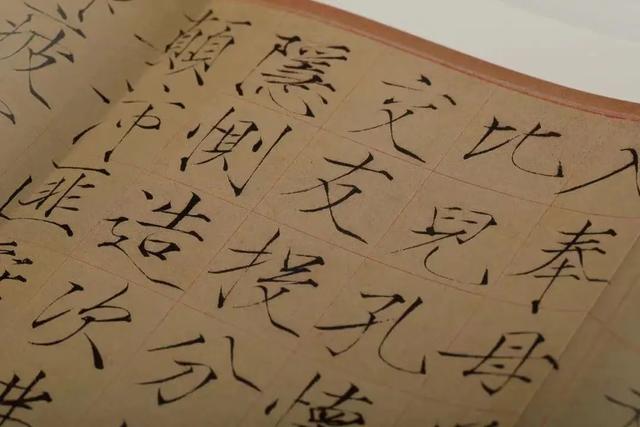 入奉母
比兒孔懷
交友投分
隱惻造次
顛沛匪
疲